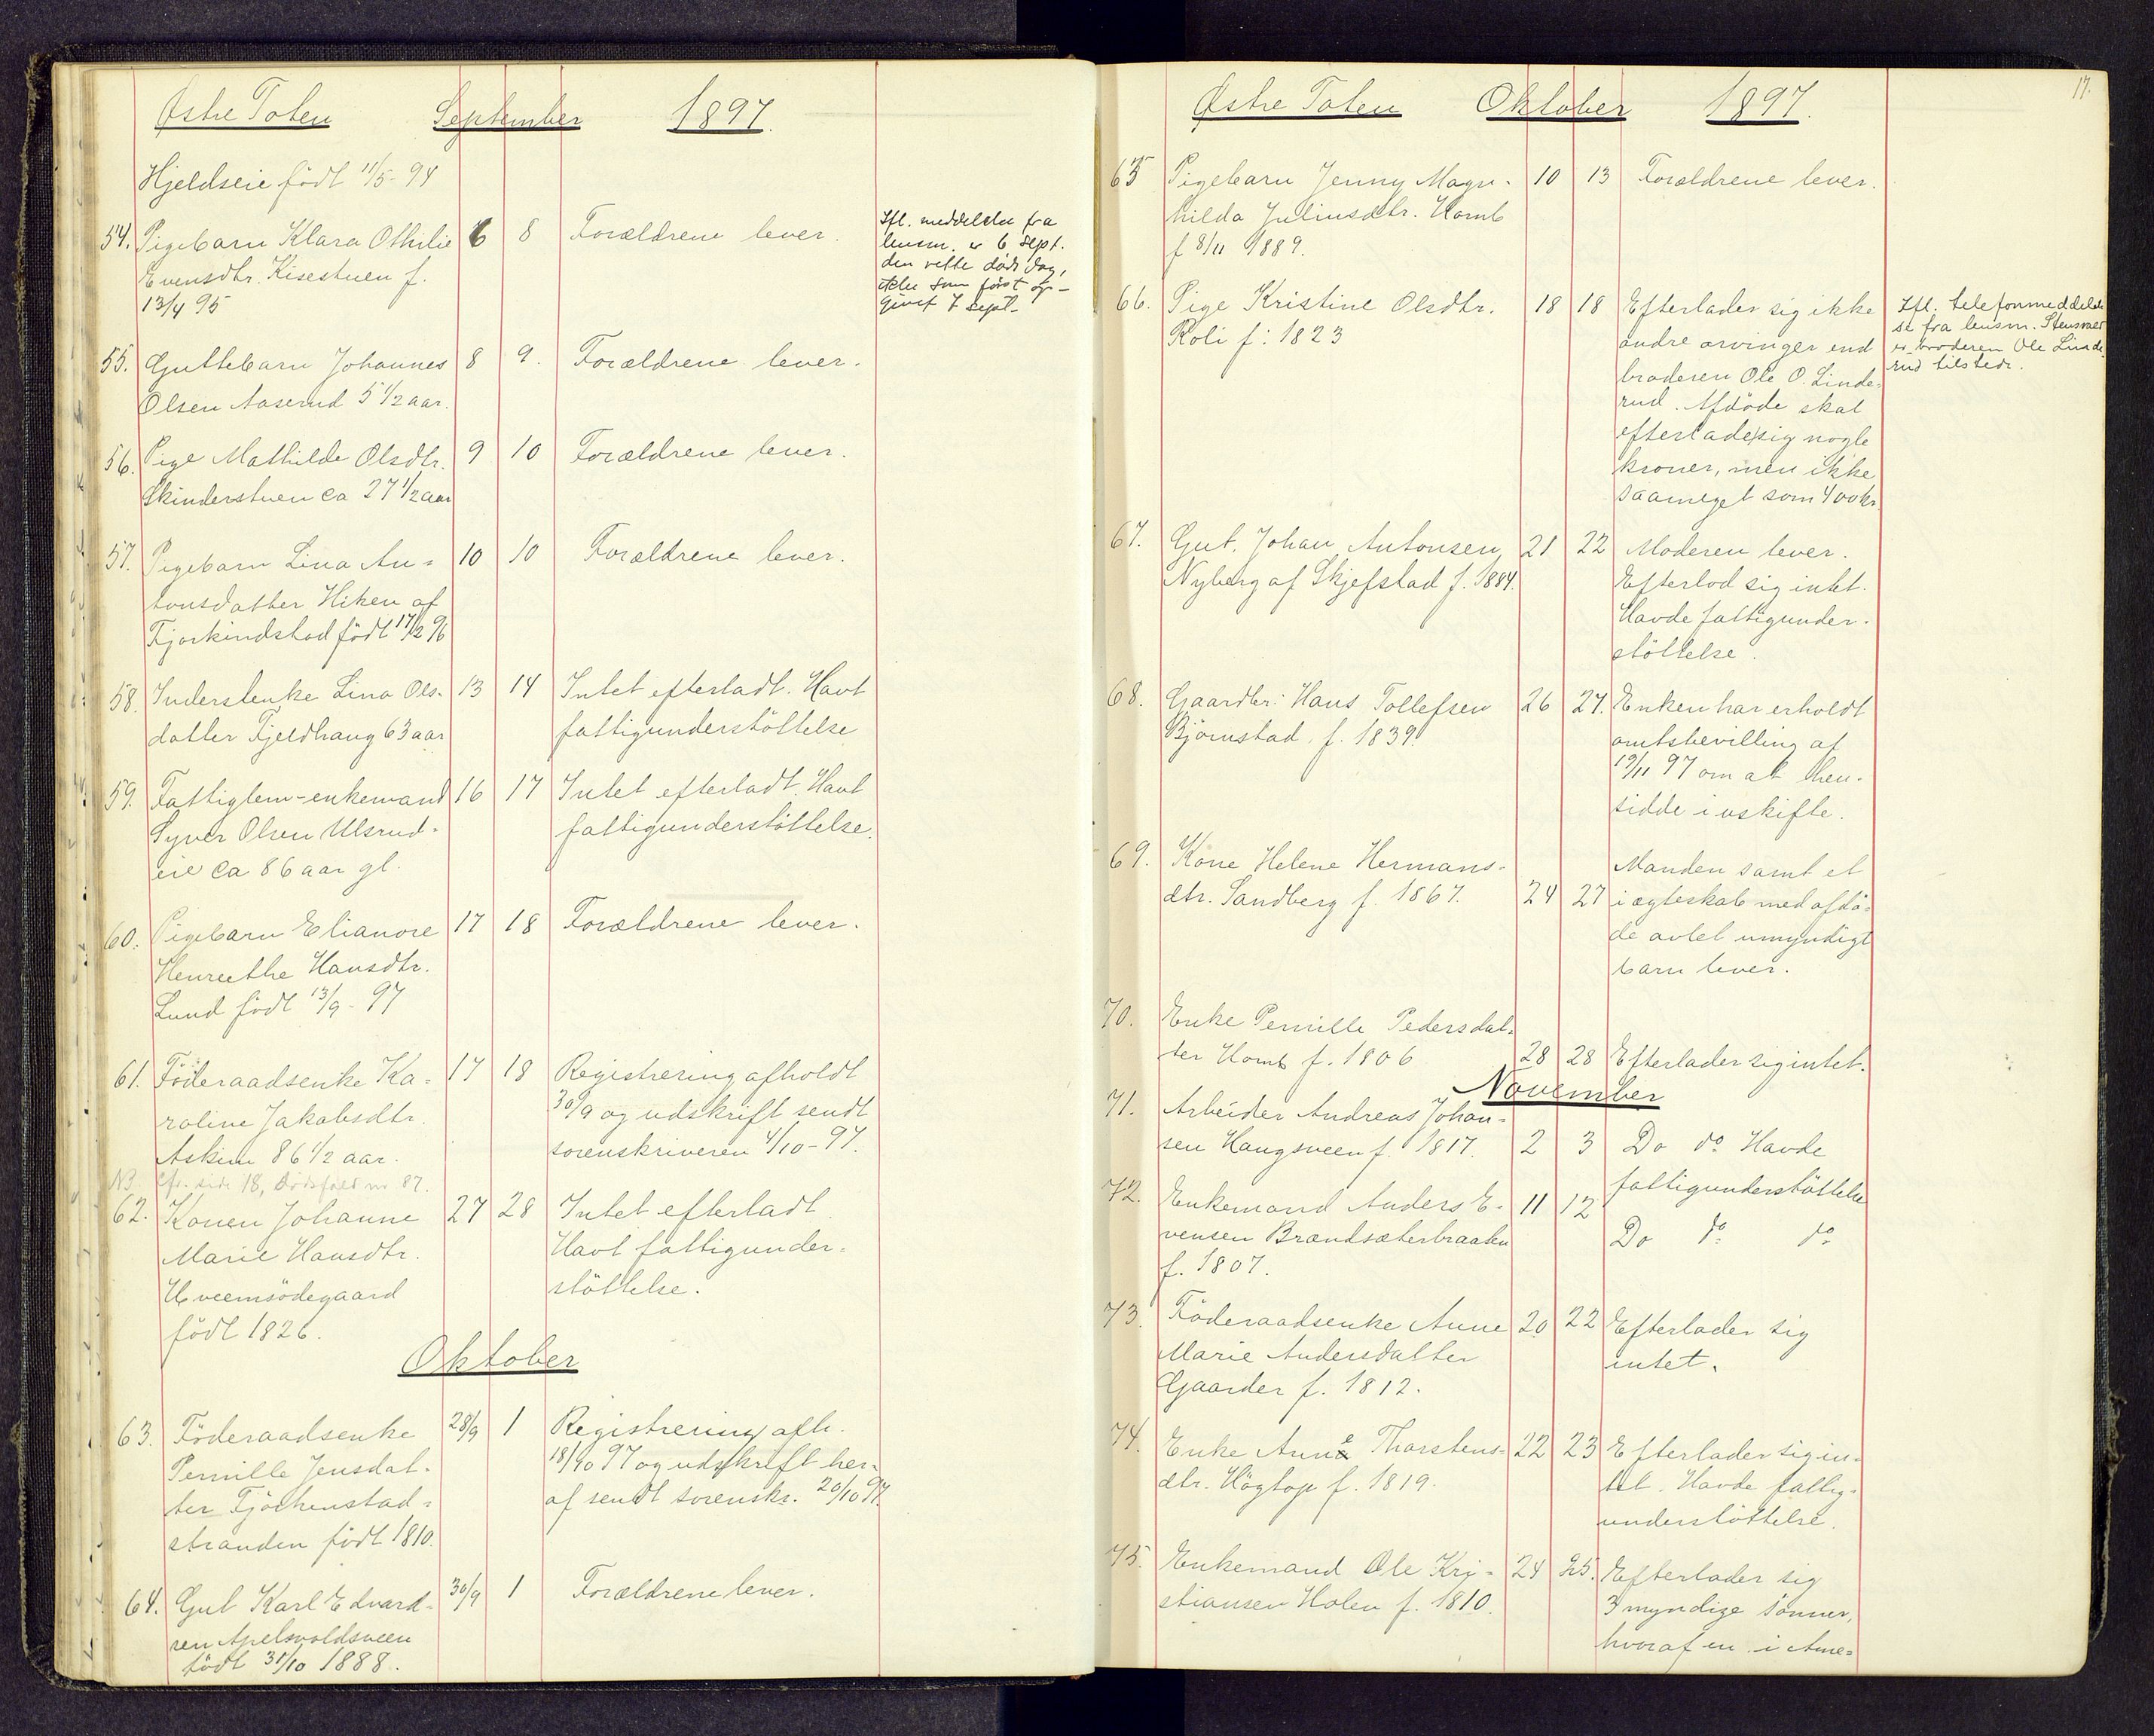 Østre Toten September 1897.
Hjeldseie födt 11/5-94
54. Pigebarn Klara Othilie 6 8 Forældrene lever.
Evensdtr. Kisestuen f.
13/4 95
Ifl. meddelelse fra
lensm. er 6 sept.
den rette döds dag,
ikke som först op-
givet 7 sept.
55. Guttebarn Johannes 8 9. Forældrene lever.
Olsen Aaserud 5 1/2 aar.
56. Pige Mathilde Olsdtr. 9 10 Forældrene lever.
Skinderstuen ca 27 1/2 aar
57. Pigebarn Lina An= 10 10 Forældrene lever.
tonsdatter Hiken af
Fjorkindstad födt 17/2 96
58. Inderstenke Lina Ols- 13 14 Intet efterladt. Havt
datter Fjeldhaug 63 aar fattigunderstöttelse
59. Fattiglem-enkemand 16 17 Intet efterladt. Havt
Syver Olsen Ulsrud- fattigunderstöttelse.
eie ca 86 aar gl.
60. Pigebarn Elianore 17 18 Forældrene lever.
Henrethe Hansdtr.
Lund födt 13/9-97
61. Föderaadsenke Ka= 17 18 Registrering afholdt
roline Jakobsdtr. 30/9 og udskrift sendt
Askim 86 1/2 aar. sorenskriveren 4/10-97.
NB. Cfr. side 18, dödsfald nr 87.
62. Konen Johanne 27 28 Intet efterladt
Marie Hansdtr. Havt fattigunder=
Hveemsödegaard stöttelse.
födt 1826.
Oktober
63. Föderaadsenke 28/9 1 Registrering afh.
Pernille Jensdat- 18/10 97 og udskrift her-
ter Fjörkenstad= af sendt sorenskr. 20/10 97.
stranden födt 1810.
64. Gut Karl Edvard- 30/9 1 Forældrene lever.
sen Apelsvoldsveen
födt 31/10 1888.
17.
Østre Toten Oktober 1897.
65 Pigebarn Jenny Magn- 10 13 Forældrene lever.
hilda Juliusdtr. Homb
f 8/11 1889.
66. Pige Kristine Olsdtr. 18 18 Efterlader sig ikke
Roli f: 1823 andre arvinger end
broderen Ole O. Linde-
rud. Afdöde skal
efterlade sig nogle
kroner, men ikke
saameget som 400 kr.
Ifl. telefonmeddelel-
se fra lensm. Stensvold
er broderen Ole Linde-
rud tilstede.
67. Gut. Johan Antonsen 21 22 Moderen lever.
Nyberg af Skjefstad f. 1884. Efterlod sig intet.
Havde fattigunder-
stöttelse.
68. Gaardbr: Hans Tollefsen 26 27. Enken har erholdt
Björnstad f. 1839. amtsbevilling af
19/11 97 om at hen-
sidde i uskifte.
69. Kone Helene Hermans- Manden samt et
dtr. Sandberg f. 1867. 24 27 i ægteskab med afdö-
de avlet umyndigt
barn lever.
70. Enke Pernille Pedersdat-
ter Homb f. 1806 28 28 Efterlader sig intet.
November
71. Arbeider Andreas Johan-
sen Haugsveen f. 1817. 2 3 Do do Havde
fattigunderstöttelse
72. Enkemand Anders E- 11 12
vensen Brandsæterbraaten Do do do
f. 1807.
73. Föderaadsenke Anne 20 22 Efterlader sig
Marie Andersdatter intet.
Gaarder f. 1812.
74. Enke Anne Thorstens- 22 23 Efterlader sig in-
dtr. Högtop f. 1819. tet. Havde fattig-
understöttelse.
75. Enkemand Ole Kri- 24 25. Efterlader sig
stiansen Holen f. 1810. 3 myndige sönner,
hvoraf en i Ame=